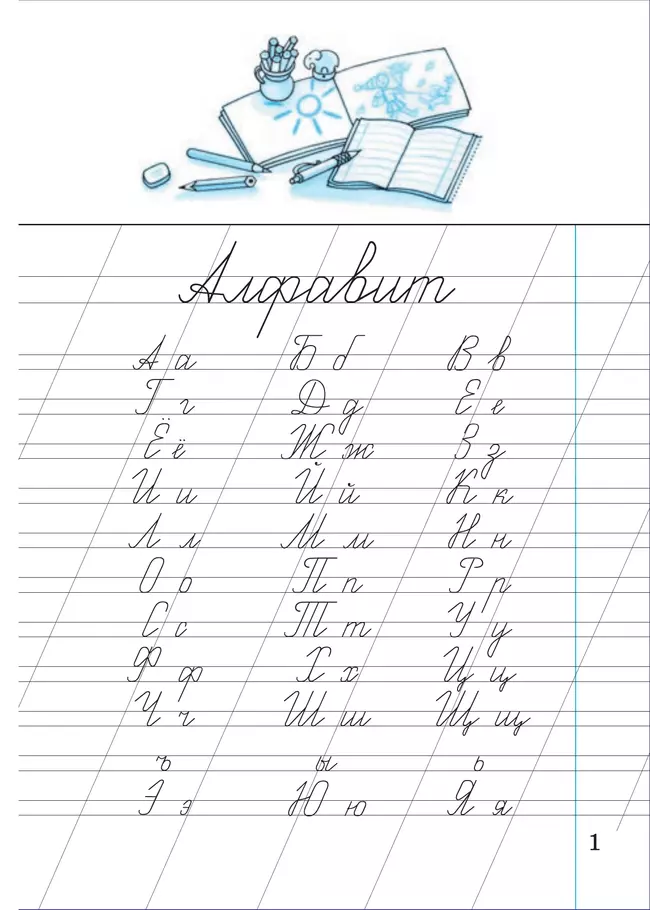 Алфавит
А а Б б В в
Г г Д д Е е
Ё ё Ж ж З з
И и Й й К к
Л л М м Н н
О о П п Р р
С с Т т У у
Ф ф Х х Ц ц
Ч ч Ш ш Щ щ
ъ ы ь
Э э Ю ю Я я
1